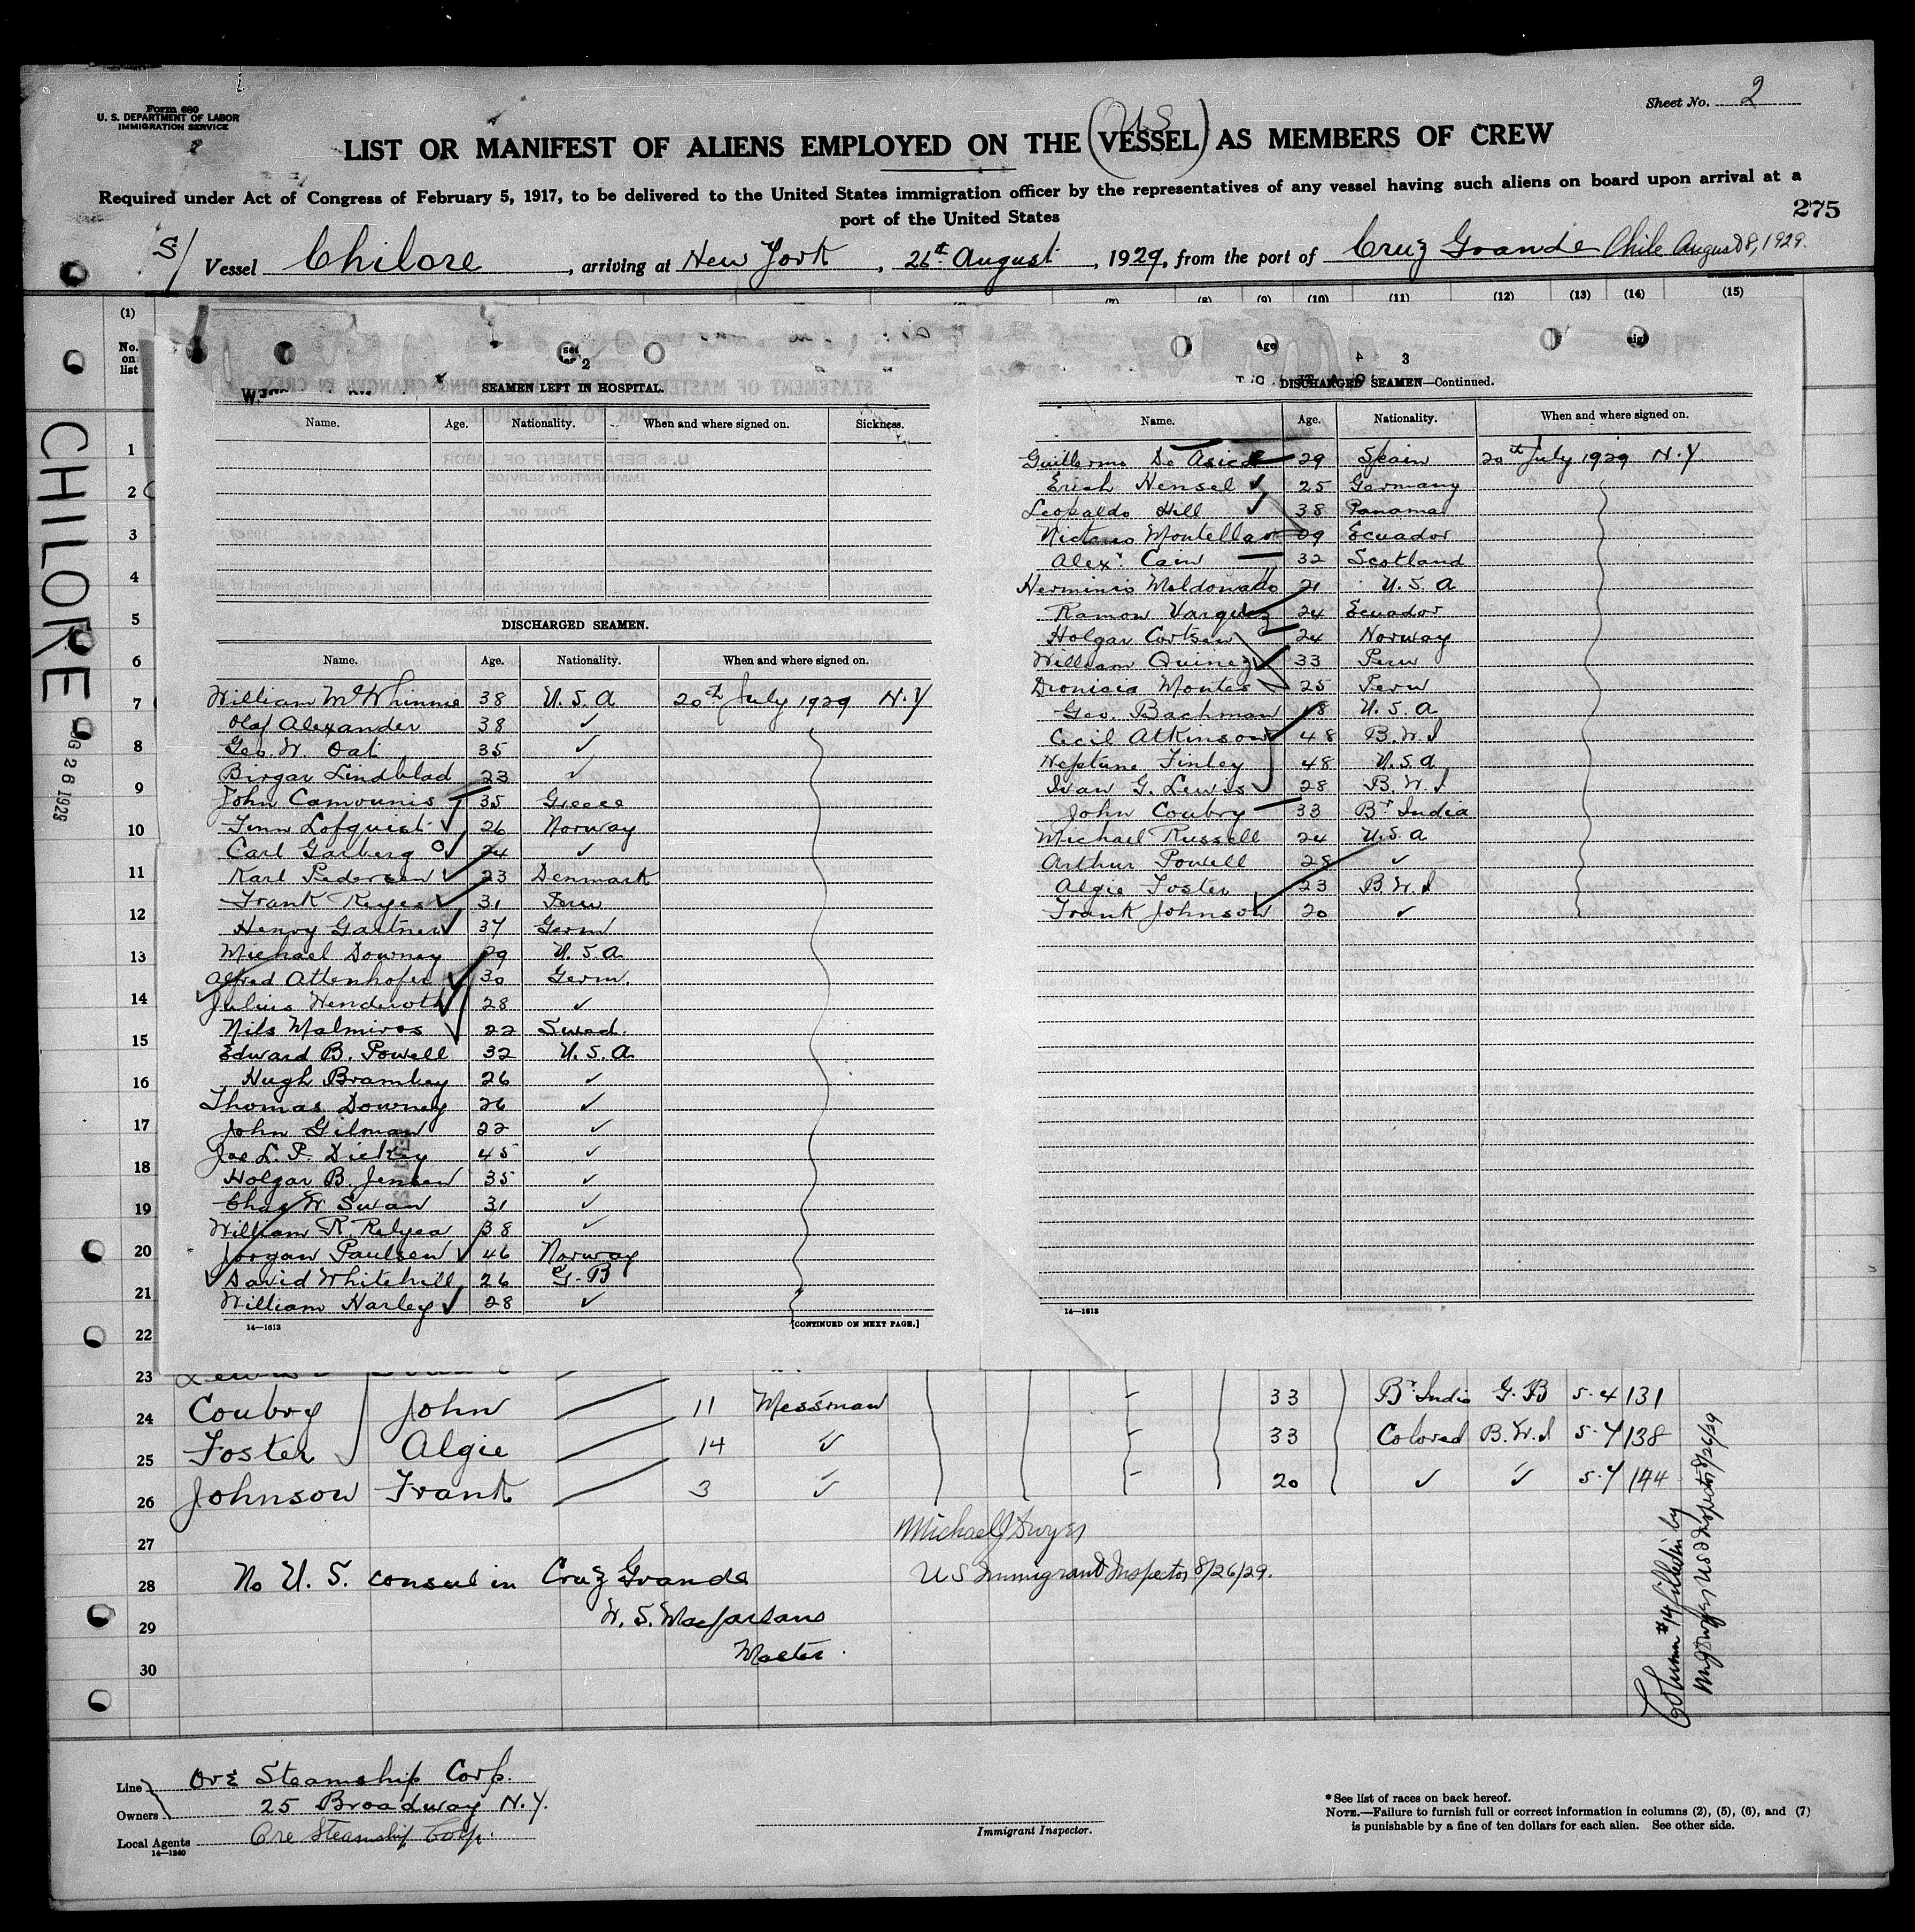 Form 680
U. S. DEPARTMENT OF LABOR
IMMIGRATION SERVICE
Sheet No. 2
(US)
LIST OR MANIFEST OF ALIENS EMPLOYED ON THE VESSEL AS MEMBERS OF CREW
Required under Act of Congress of February 5, 1917, to be delivered to the United States immigration officer by the representatives of any vessel having such aliens on board upon arrival at a
port of the United States
275
S/ Vessel Chilore, arriving at New York, 26th August, 1929, from the port of Cruz Grande Chile August 8, 1929.
(1) (7) (8) (9) (10) (11) (12) (13) (14) (15)
No. on list
CHILORE
26 1929
2
SEAMEN LEFT IN HOSPITAL.
Name. Age. Nationality. When and where signed on. Sickness.
DISCHARGED SEAMEN.
Name. Age. Nationality. When and where signed on.
William McWhinnie 38 U.S.A 20th July 1929 N.Y
Olaf Alexander 38 ✓
Geo. W. Oat 35 ✓
Birgar Lindblad 23 ✓
John Camounis 35 Greece
Finn Lofquist 26 Norway
Carl Garberg 24 ✓
Karl Pedersen 23 Denmark
Frank Reyes 31 Peru
Henry Gartner 37 Germ
Michael Downey 29 U.S.A
Alfred Attenhofer 30 Germ.
Julius Henderoth 28 ✓
Nils Malmiros 22 Swed.
Edward B. Powell 32 U.S.A.
Hugh Brambey 26 ✓
Thomas Downey 26 ✓
John Gilman 22 ✓
Joe L. P. Dickey 45 ✓
Holgar B. Jensen 35 ✓
Chas W Swan 31 ✓
William R. Relyea 38 ✓
Jorgan Paulsen 46 Norway
David Whitehill 26 G.B
William Harley 28 ✓
14—1613
[CONTINUED ON NEXT PAGE.]
3
DISCHARGED SEAMEN—Continued.
Name. Age. Nationality. When and where signed on.
Guillermo De Asica 29 Spain 20th July 1929 N.Y
Erich Hensel 25 Germany
Leopaldo Hill 38 Panama
Montella 29 Ecuador
Alexr. Cain 32 Scotland
Herminio Meldonado 21 U.S.A
Ramon Varquez 24 Ecuador
Holgar Cortsen 24 Norway
William Quinez 33 Peru
Dionicia Montes 25 Peru
Geo. Bachman 18 U.S.A
Cecil Atkinson 48 B.W.I
Neptune Finley 48 U.S.A
Ivan G. Lewis 28 B.W.I
John Coubry 33 Br India
Michael Russell 24 U.S.A
Arthur Powell 28 ✓
Algie Foster 23 B.W.I
Frank Johnson 20 ✓
14—1613
1
2
3
4
5
6
7
8
9
10
11
12
13
14
15
16
17
18
19
20
21
22
23
24 Coubry John 11 Messman 33 Br India G.B 5-4 131
25 Foster Algie 14 ✓ 33 Colored B.W.I 5-7 138
26 Johnson Frank 3 ✓ 20 ✓ ✓ 5-7 144
27 Michael J Dwyer
28 No U.S. consul in Cruz Grande US Immigrant Inspector 8/26/29.
29 W. S. Macfarlane
30 Master.
Column #14 filled in by
US Inspector 8/26/29
Line Ore Steamship Corp.
Owners 25 Broadway N.Y.
Local Agents Ore Steamship Corp.
14—1240
Immigrant Inspector.
* See list of races on back hereof.
NOTE.—Failure to furnish full or correct information in columns (2), (5), (6), and (7)
is punishable by a fine of ten dollars for each alien. See other side.